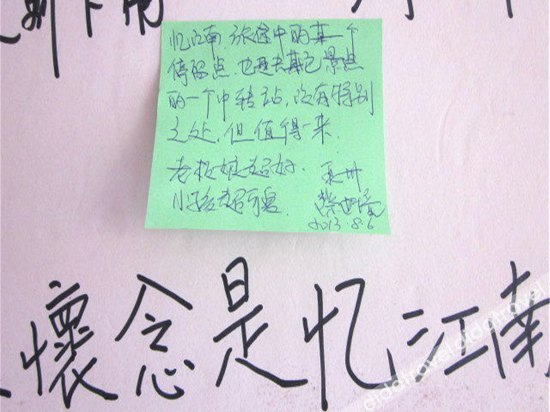 忆江南,旅途中的某一个
停留点,也是去其它景点
的一个中转站,没有特别
之处,但值得一来.
老板娘超好.
小孩超可爱.
2013.8.6
懷念是忆江南
didatravel didatravel